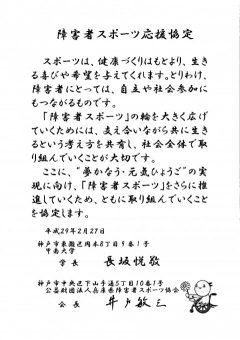 障害者スポーツ応援協定
スポーツは、健康づくりはもとより、生き
る喜びや希望を与えてくれます。とりわけ、
障害者にとっては、自立や社会参加に
もつながるものです。
「障害者スポーツ」の輪を大きく広げ
ていくためには、支え合いながら共に生き
るという考え方を共有し、社会全体で取
り組んでいくことが大切です。
ここに、“夢かなう・元気ひょうご”の実
現に向け、「障害者スポーツ」をさらに推
進していくため、ともに取り組んでいくこと
を協定します。
平成29年2月27日
神戸市東灘区岡本8丁目9番1号
甲南大学
学長 長坂悦敬
神戸市中央区下山手通5丁目10番1号
公益財団法人兵庫県障害者スポーツ協会
会長 井戸敏三